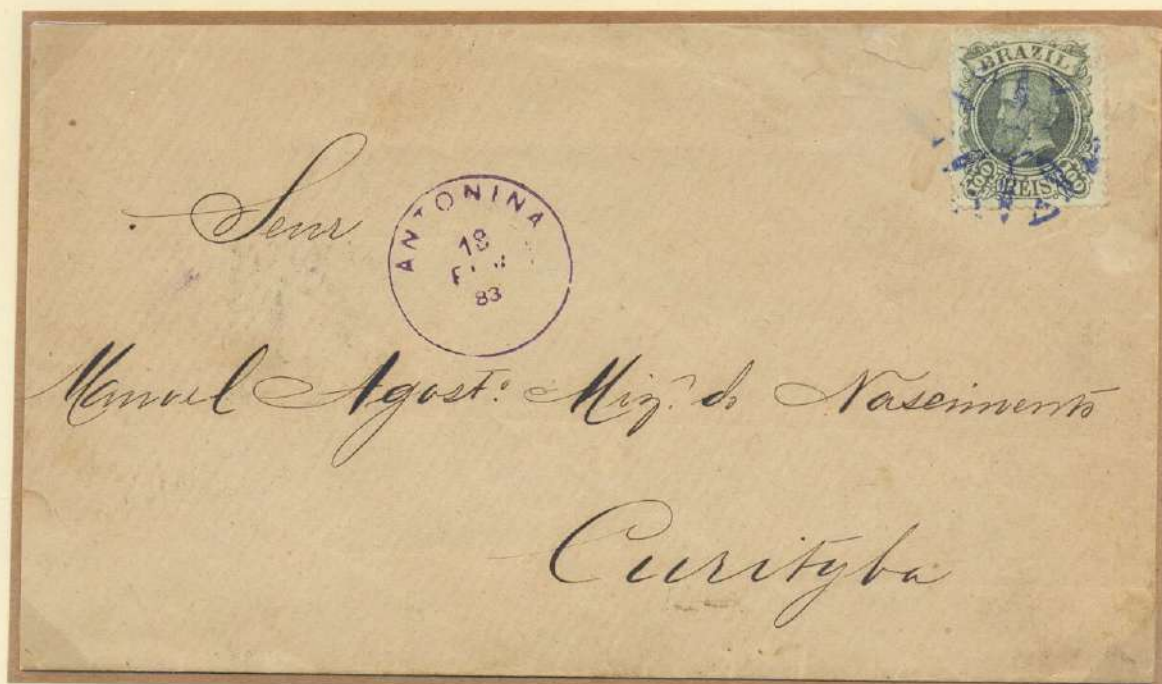 BRAZIL
100 REIS. 100
Senr
ANTONINA
18
83
Manoel Agost.º Miz.' do Nascimento
Curityba